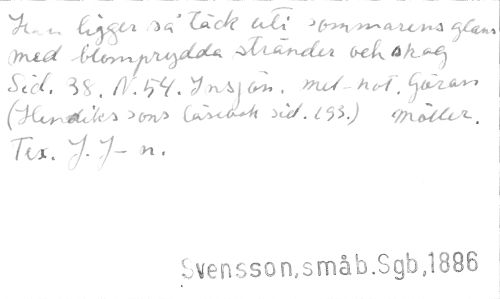 Han ligger så täck uti sommarens glans
med blomprydda stränder och skog
Sid. 38. N. 54. Insjön. mel-not. Göran
(Hendikssons läsebok sid. 193.) Möller.
Tex. J. J-n.
Svensson,småb.Sgb,1886